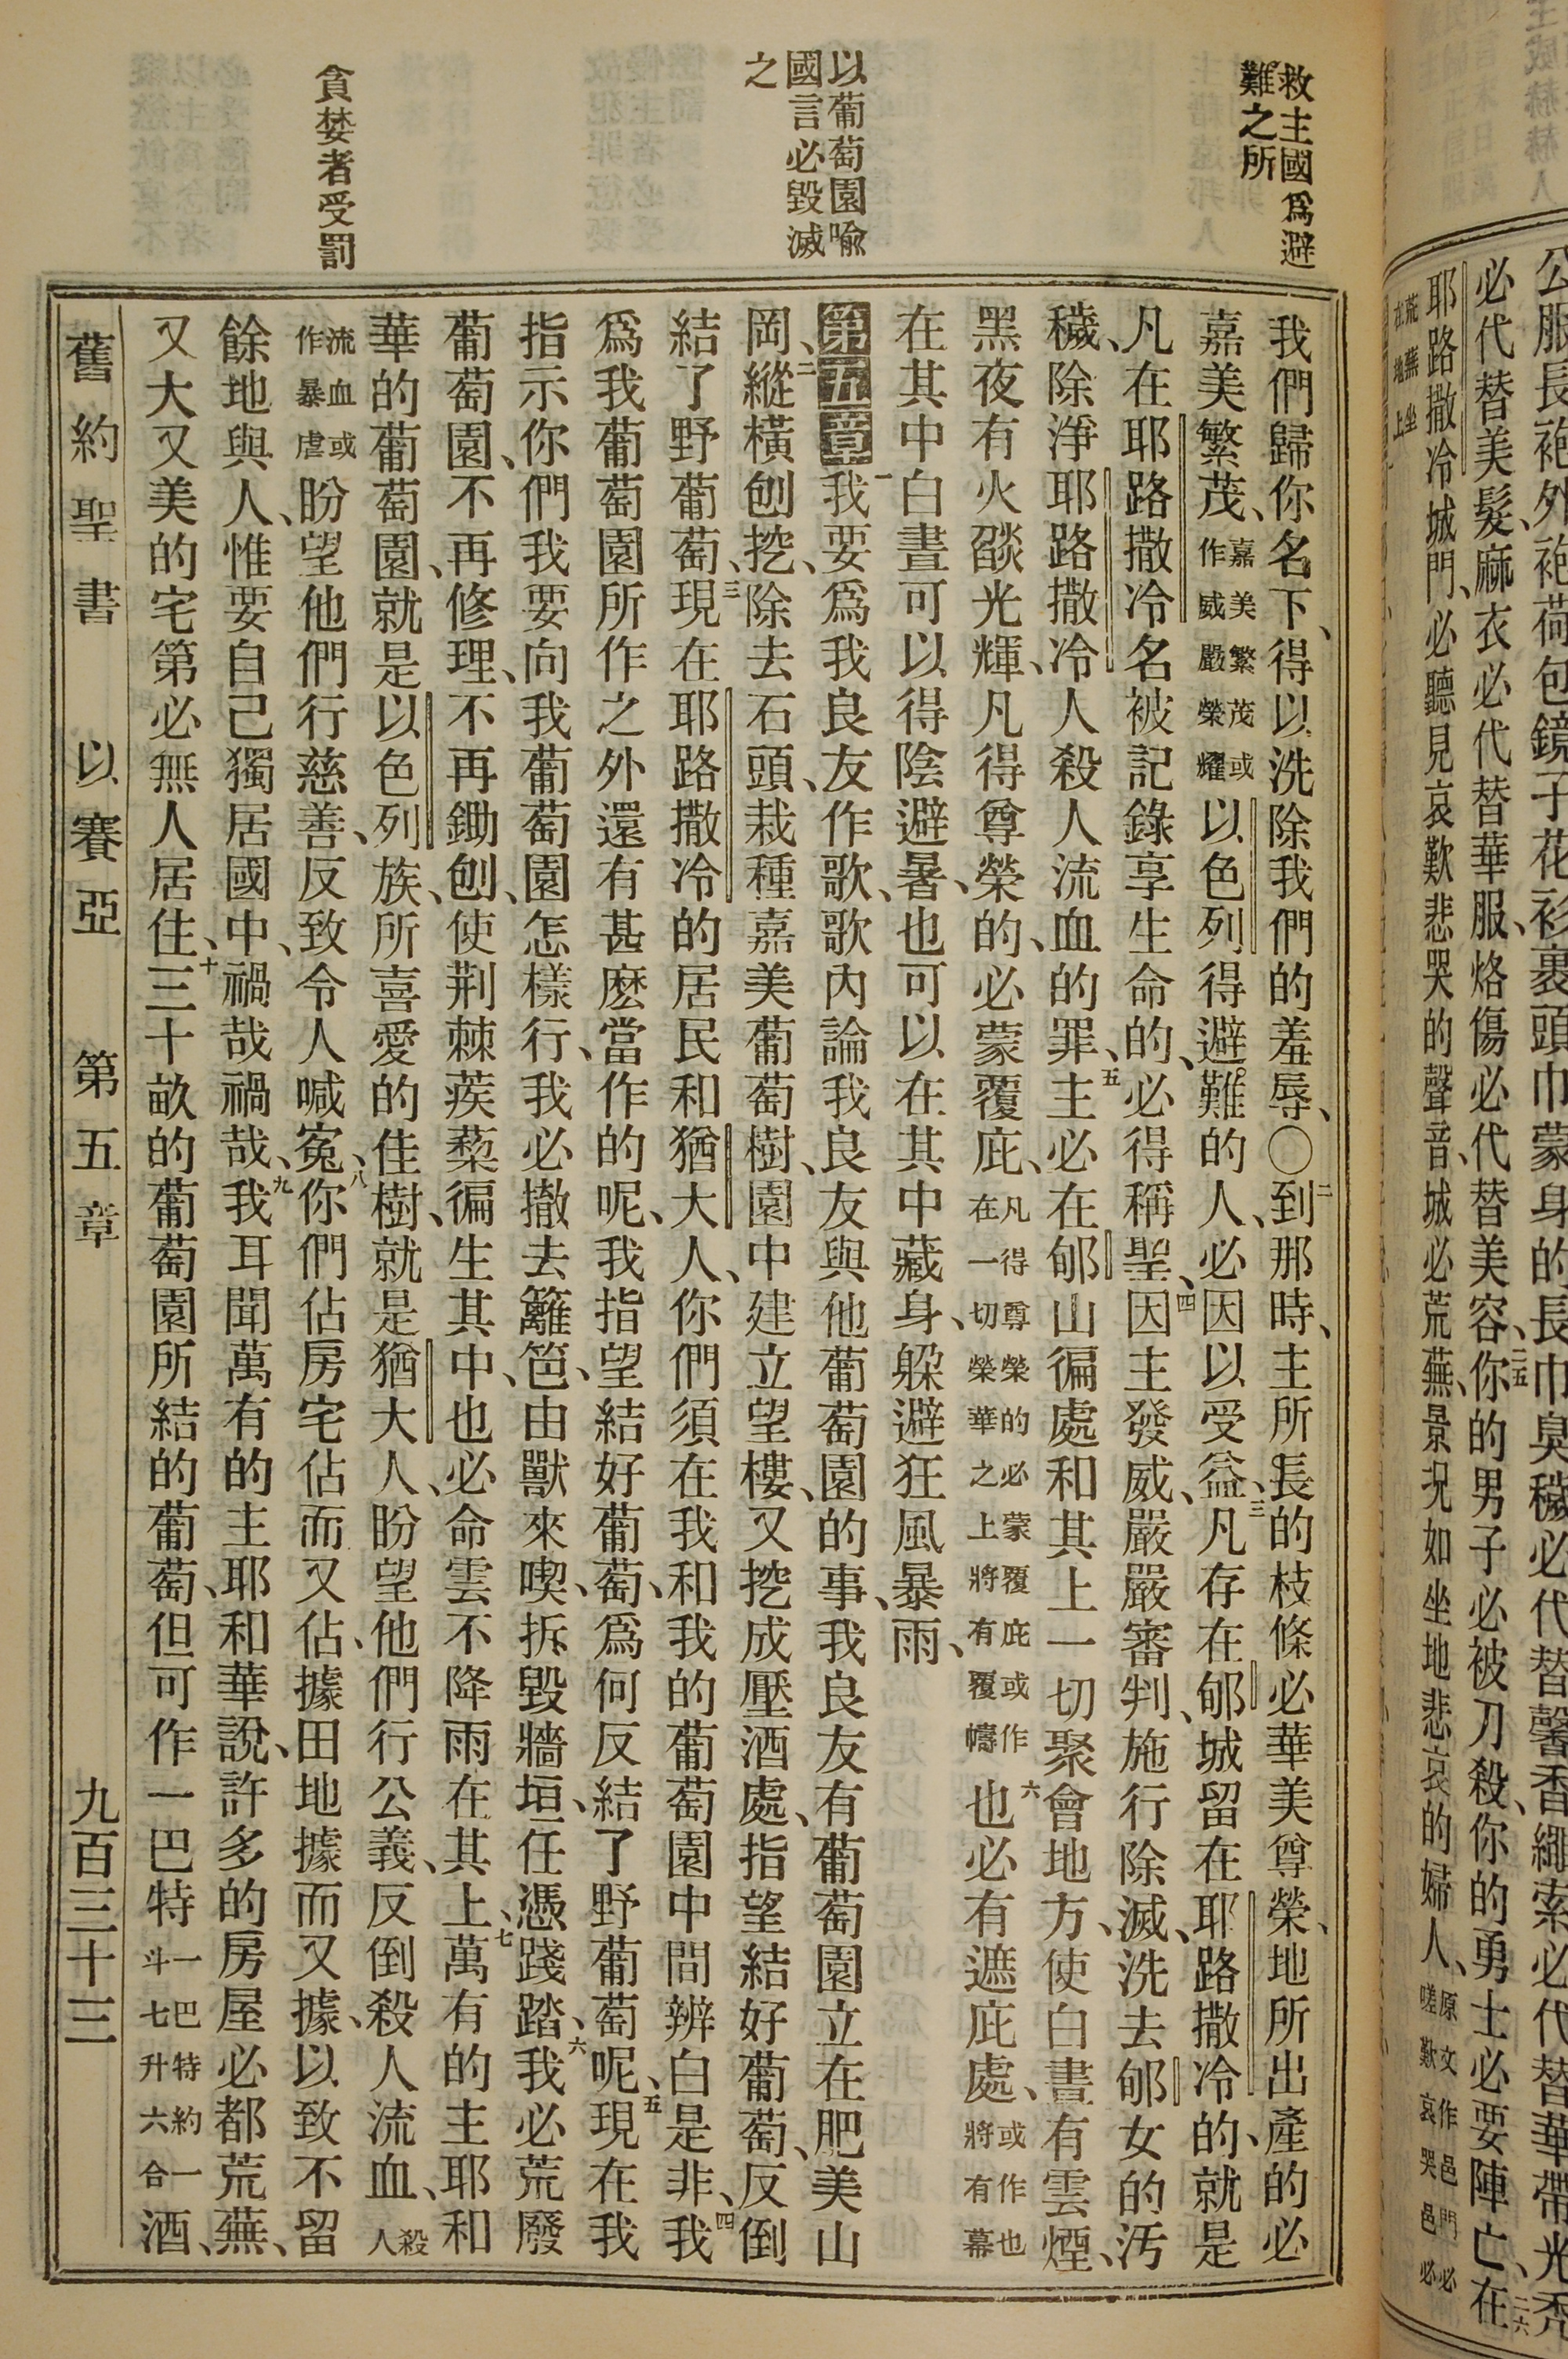 公服長袍外袍荷包鏡子花衫裹頭巾蒙身的長巾臭穢必代替馨香繩索必代替華帶光禿
必代替美髮、麻衣必代替華服、烙傷必代替美容、二五你的男子必被刀殺、你的勇士必要陣亡、二六在
耶路撒冷城門、必聽見哀歎悲哭的聲音、城必荒蕪、景況如坐地悲哀的婦人、原文作邑門必嗟歎哀哭邑必
荒蕪坐在地上
救主國爲避
難之所
以葡萄園喻
國言必毀滅
之
貪婪者受罰
我們歸你名下、得以洗除我們的羞辱、〇二到那時、主所長的枝條必華美尊榮、地所出產的必
嘉美繁茂、嘉美繁茂或作威嚴榮耀以色列得避難的人、必因以受益、三凡存在郇城留在耶路撒冷的、就是
凡在耶路撒冷名被記錄享生命的、必得稱聖、四因主發威、嚴嚴審判、施行除滅、洗去郇女的汚
穢、除淨耶路撒冷人殺人流血的罪、五主必在郇山徧處和其上一切聚會地方、使白晝有雲煙、
黑夜有火燄光輝、凡得尊榮的、必蒙覆庇、凡得尊榮的必蒙覆庇或作在一切榮華之上將有覆幬六也必有遮庇處、或作也將有幕
在其中白晝可以得陰避暑、也可以在其中藏身、躱避狂風暴雨、
第五章一我要爲我良友作歌、歌內論我良友與他葡萄園的事、我良友有葡萄園立在肥美山
岡、二縱橫刨挖、除去石頭、栽種嘉美葡萄樹、園中建立望樓、又挖成壓酒處、指望結好葡萄、反倒
結了野葡萄、三現在耶路撒冷的居民和猶大人、你們須在我和我的葡萄園中間辨白是非、四我
爲我葡萄園所作之外還有甚麽當作的呢、我指望結好葡萄、爲何反結了野葡萄呢、五現在我
指示你們我要向我葡萄園怎樣行、我必撤去籬笆、由獸來喫、拆毀牆垣、任憑踐踏、六我必荒廢
葡萄園、不再修理、不再鋤刨、使荆棘蒺蔾徧生其中、也必命雲不降雨在其上、七萬有的主耶和
華的葡萄園、就是以色列族、所喜愛的佳樹、就是猶大人、盼望他們行公義、反倒殺人流血、殺人
流血或作暴虐盼望他們行慈善、反致令人喊寃、八你們佔房宅佔而又佔、據田地據而又據、以致不留
餘地與人、惟要自己獨居國中、禍哉禍哉、九我耳聞萬有的主耶和華說、許多的房屋必都荒蕪、
又大又美的宅第必無人居住、十三十畝的葡萄園所結的葡萄、但可作一巴特一巴特約一斗七升六合酒、
舊約聖書　以賽亞　第五章　九百三十三